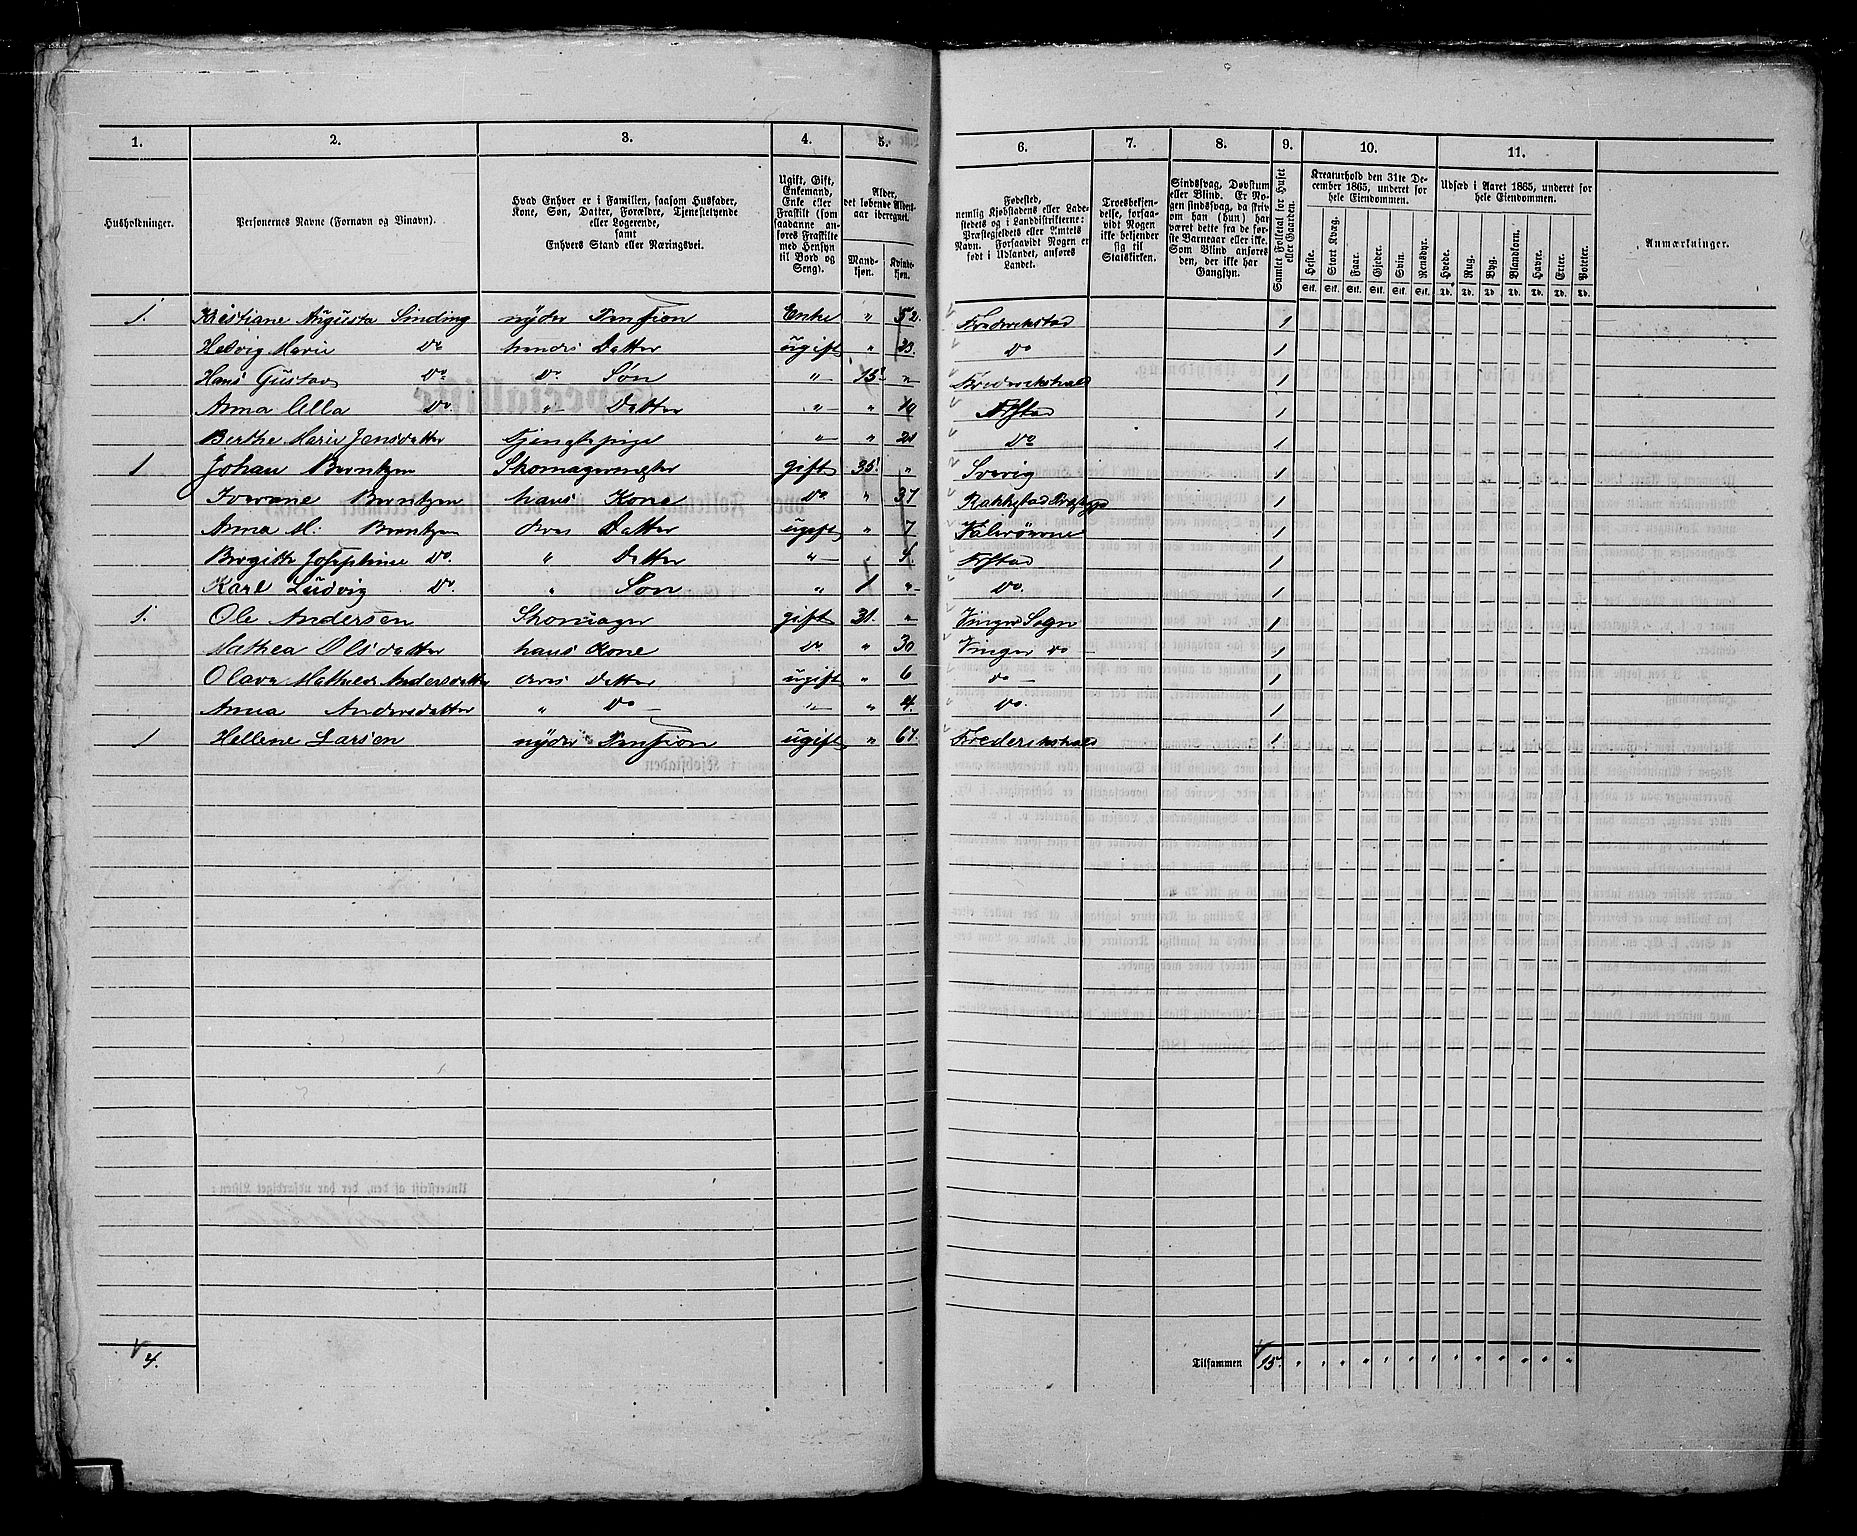 1. 2. 3. 4. 5. 6. 7. 8. 9. 10. 11.
Husholdninger.
Personernes Navne (Fornavn og Tilnavn).
Hvad Enhver er i Familien, saasom Husfader,
Kone, Søn, Datter, Forældre, Tjenestetyende
eller Logerende,
samt
Enhvers Stand eller Næringsvei.
Ugift, Gift,
Enkemand,
Enke eller
Fraskilt (som
saadanne an-
føres Fraskilte
med Hensyn
til Bord og
Seng).
Alder,
det løbende Alders-
aar iberegnet.
Mand-
kjøn.
Kvinde-
kjøn.
Fødested,
nemlig Kjøbstadens eller Lade-
stedets og i Landdistrikterne:
Præstegjeldets eller Amtets
Navn. Forsaavidt Nogen er
født i Udlandet, anføres
Landet.
Troesbekjen-
delse, forsaa-
vidt Nogen
ikke bekjender
sig til
Statskirken.
Sindssvag, Døvstum
eller Blind. Er No-
gen sindssvag, da skriv
om han (hun) har
været dette fra de før-
ste Barneaar eller ikke.
Som Blind ansøres
den, der ikke har
Gangsyn.
Samlet Folketal for Huset
eller Gaarden.
Kreaturhold den 31te De-
cember 1865, underet for
hele Eiendommen.
Heste. Stort Kvæg. Faar. Gjeder. Svin. Rensdyr.
Stk. Stk. Stk. Stk. Stk. Stk.
Udsæd i Aaret 1865, underet for
hele Eiendommen.
Hvede. Rug. Byg. Blandkorn. Havre. Erter. Poteter.
Td. Td. Td. Td. Td. Td. Td.
Anmærkninger.
1. Kristiane Augusta Sinding nyder Pension Enke " 52. Frederikstad 1
Hedvig Marie Do hendes Datter ugift " 23. Do 1
Hans Gustav Do Do Søn " 15 " Frederikshald 1
Anna Ella Do " Datter " " 10 Fstad 1
Berthe Marie Jensdatter Tjenestepige " " 21 Do 1
1 Johan Berntzen Skomagermester gift 35 " Sverig 1
Iverane Berntzen hans Kone Do " 37 Rakkestad 1
Anna M. Berntzen deres Datter ugift " 7 Hvaløerne 1
Birgitte Josephine Do. " Datter " 4. Fstad 1
Karl Ludvig Do. " Søn " 1 " Do. 1
1. Ole Andersen Skomager gift 31. " Vinger Sogn 1
Mathea Olsdatter hans Kone Do " 30 Vinger do 1
Olava Mathilde Andersdatter deres Datter ugift " 6 do 1
Anna Andersdatter " Do " " 4. Do. 1
1 Hellene Larsen nyder Pension ugift " 67. Frederikshald 1
4. Tilsammen 15. " " " " " " " " " " " " "